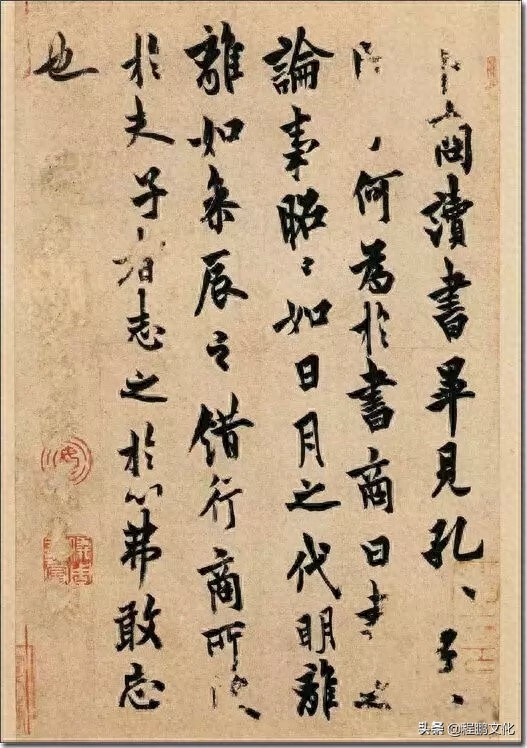 卜商讀書畢見孔、子、
何為於書商曰書之
論事昭〻如日月之代明離
離如參辰之錯行商所受
於夫子者志之於心弗敢忘
也
头条 @程鹏文化